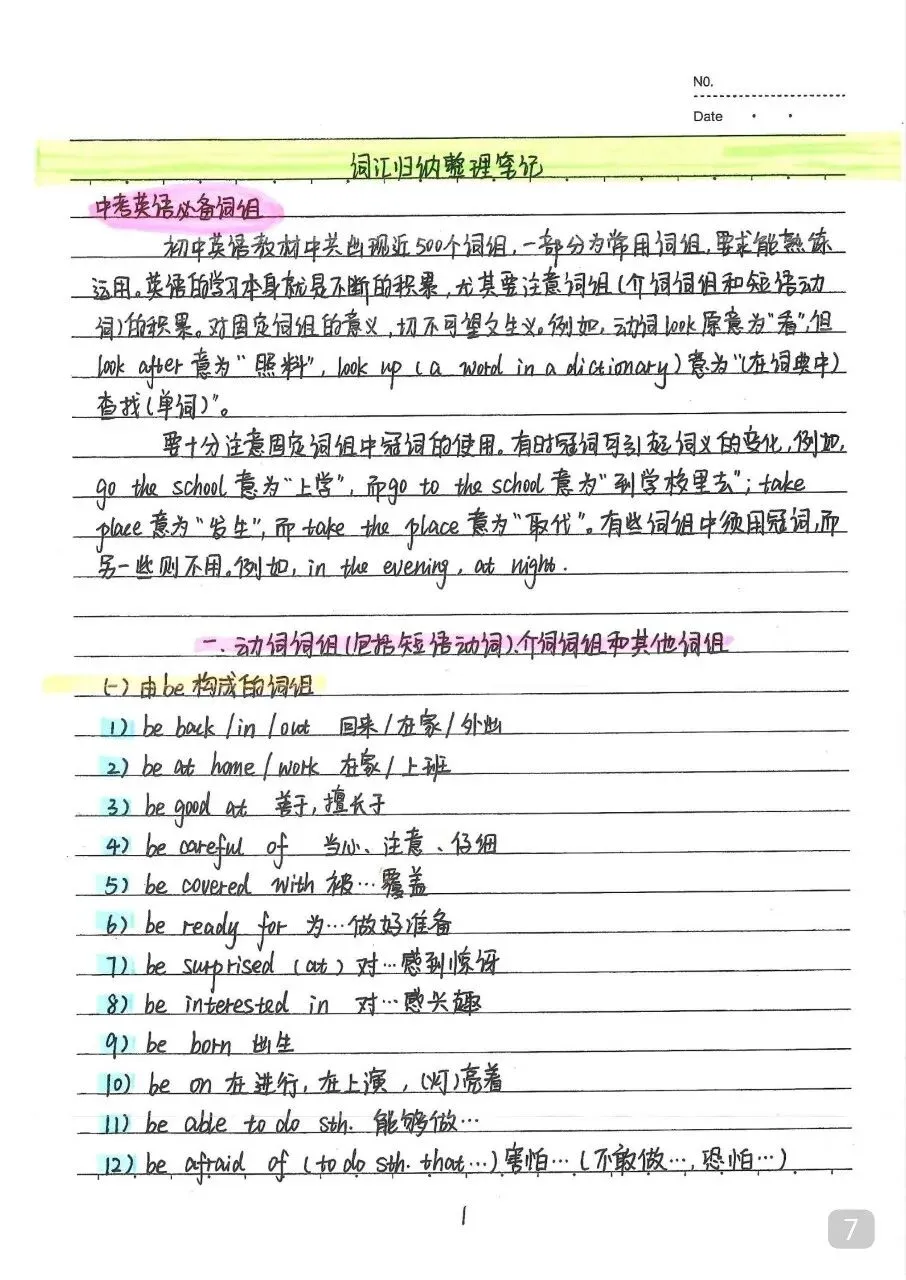 NO.
Date
词汇归纳整理笔记
中考英语必备词组
初中英语教材中共出现近500个词组,一部分为常用词组,要求能熟练
运用。英语的学习本身就是不断的积累,尤其要注意词组(介词词组和短语动
词)的积累。对固定词组的意义,切不可望文生义。例如,动词look原意为"看",但
look after意为"照料",look up (a word in a dictionary)意为"(在词典中)
查找(单词)"。
要十分注意固定词组中冠词的使用。有时冠词可引起词义的变化,例如,
go the school意为"上学",而go to the school意为"到学校里去";take
place意为"发生",而take the place意为"取代"。有些词组中须用冠词,而
另一些则不用。例如,in the evening, at night.
一.动词词组(包括短语动词)、介词词组和其他词组
(一)由be构成的词组
1) be back/in/out 回来/在家/外出
2) be at home/work 在家/上班
3) be good at 善于,擅长于
4) be careful of 当心、注意、仔细
5) be covered with 被…覆盖
6) be ready for 为…做好准备
7) be surprised (at) 对…感到惊讶
8) be interested in 对…感兴趣
9) be born 出生
10) be on 在进行,在上演,(灯)亮着
11) be able to do sth. 能够做…
12) be afraid of (to do sth. that…) 害怕…(不敢做…,恐怕…)
1
7